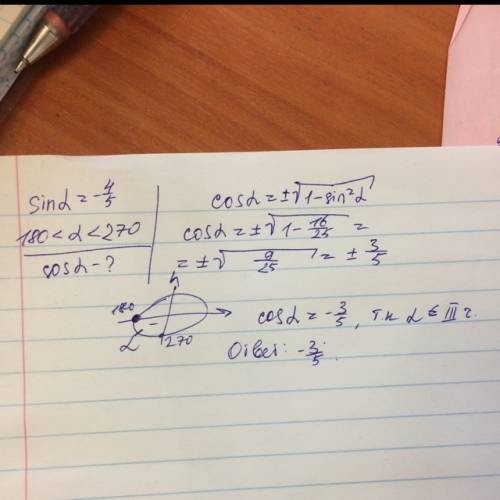 sinα = -4/5
180 < α < 270
cosα - ?
cosα = ±√(1-sin²α)
cosα = ±√(1 - 16/25) =
= ±√(9/25) = ±3/5
180
α
-
270
cosα = -3/5, т.к α ∈ III ч.
Ответ: -3/5.